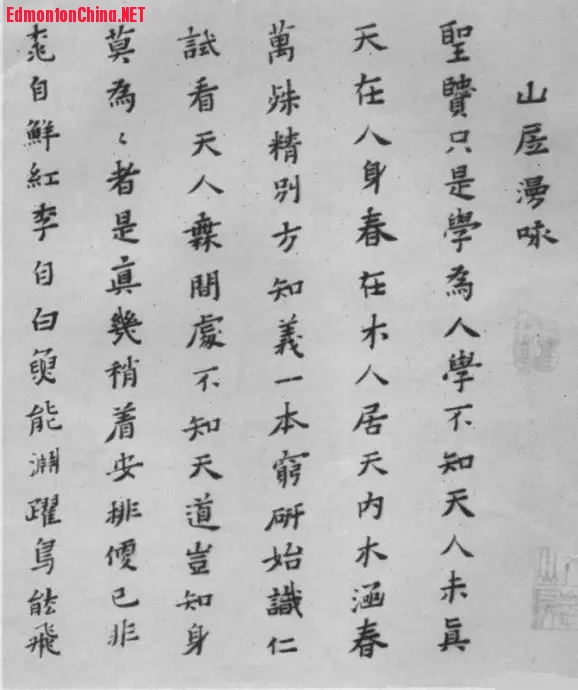 EdmontonChina.NET
山居漫咏
聖賢只是學為人學不知天人未真
天在人身春在木人居天内木涵春
萬殊精別方知義一本窮研始識仁
試看天人無間處不知天道豈知身
莫為〻者是真幾稍着安排便已非
桃自鮮紅李自白魚能淵躍鳥能飛